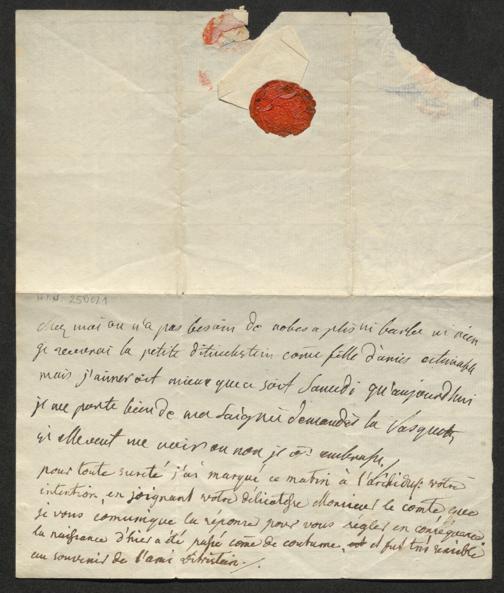 H.I.N. 250021
chez moi on n'a pas besoin de robes a plis ni barbe ni rien
je recevrai la petite come fille d'amies estimable
mais j'aimerait mieux que ce soit Samedi qu'aujourd'hui
je me porte bien de ma Saigné demandés la Vasquez
si elle veut me voir ou non je embrasse
pour toute sureté j'ai marqué ce matin à l'Archiduc votre
intention, en joignant votre Monsieur le comte que
je vous comunique la reponse pour vous regler en conséquence
la naissance d'hier a été passé come de coutume, et fut très sensible
au souvenir de l'ami